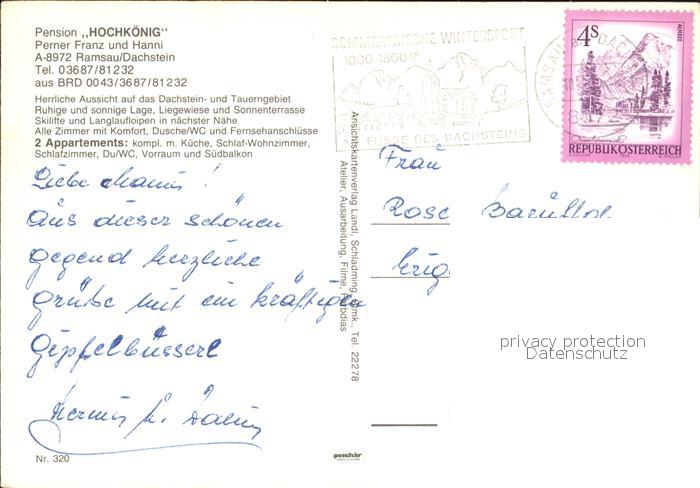 Pension „HOCHKÖNIG"
Perner Franz und Hanni
A-8972 Ramsau/Dachstein
Tel. 03687/81232
aus BRD 0043/3687/81232
Herrliche Aussicht auf das Dachstein- und Tauerngebiet
Ruhige und sonnige Lage, Liegewiese und Sonnenterrasse
Skilifte und Langlaufloipen in nächster Nähe
Alle Zimmer mit Komfort, Dusche/WC und Fernsehanschlüsse
2 Appartements: kompl. m. Küche, Schlaf-Wohnzimmer,
Schlafzimmer, Du/WC, Vorraum und Südbalkon
Liebe
Aus dieser schönen
Gegend herzliche
Grüße mit ein kräftigen
Gipfelbusserl
Nr. 320
Ansichtskartenverlag Landl, Schladming, Tel. 22278
Atelier, Ausarbeitung, Filme,
SOMMERFRISCHE WINTERSPORT
1000-1800 m
FUSSE DES DACHSTEINS
RAMSAU
4S
ALMSEE
REPUBLIK ÖSTERREICH
Frau
Rose
privacy protection
Datenschutz